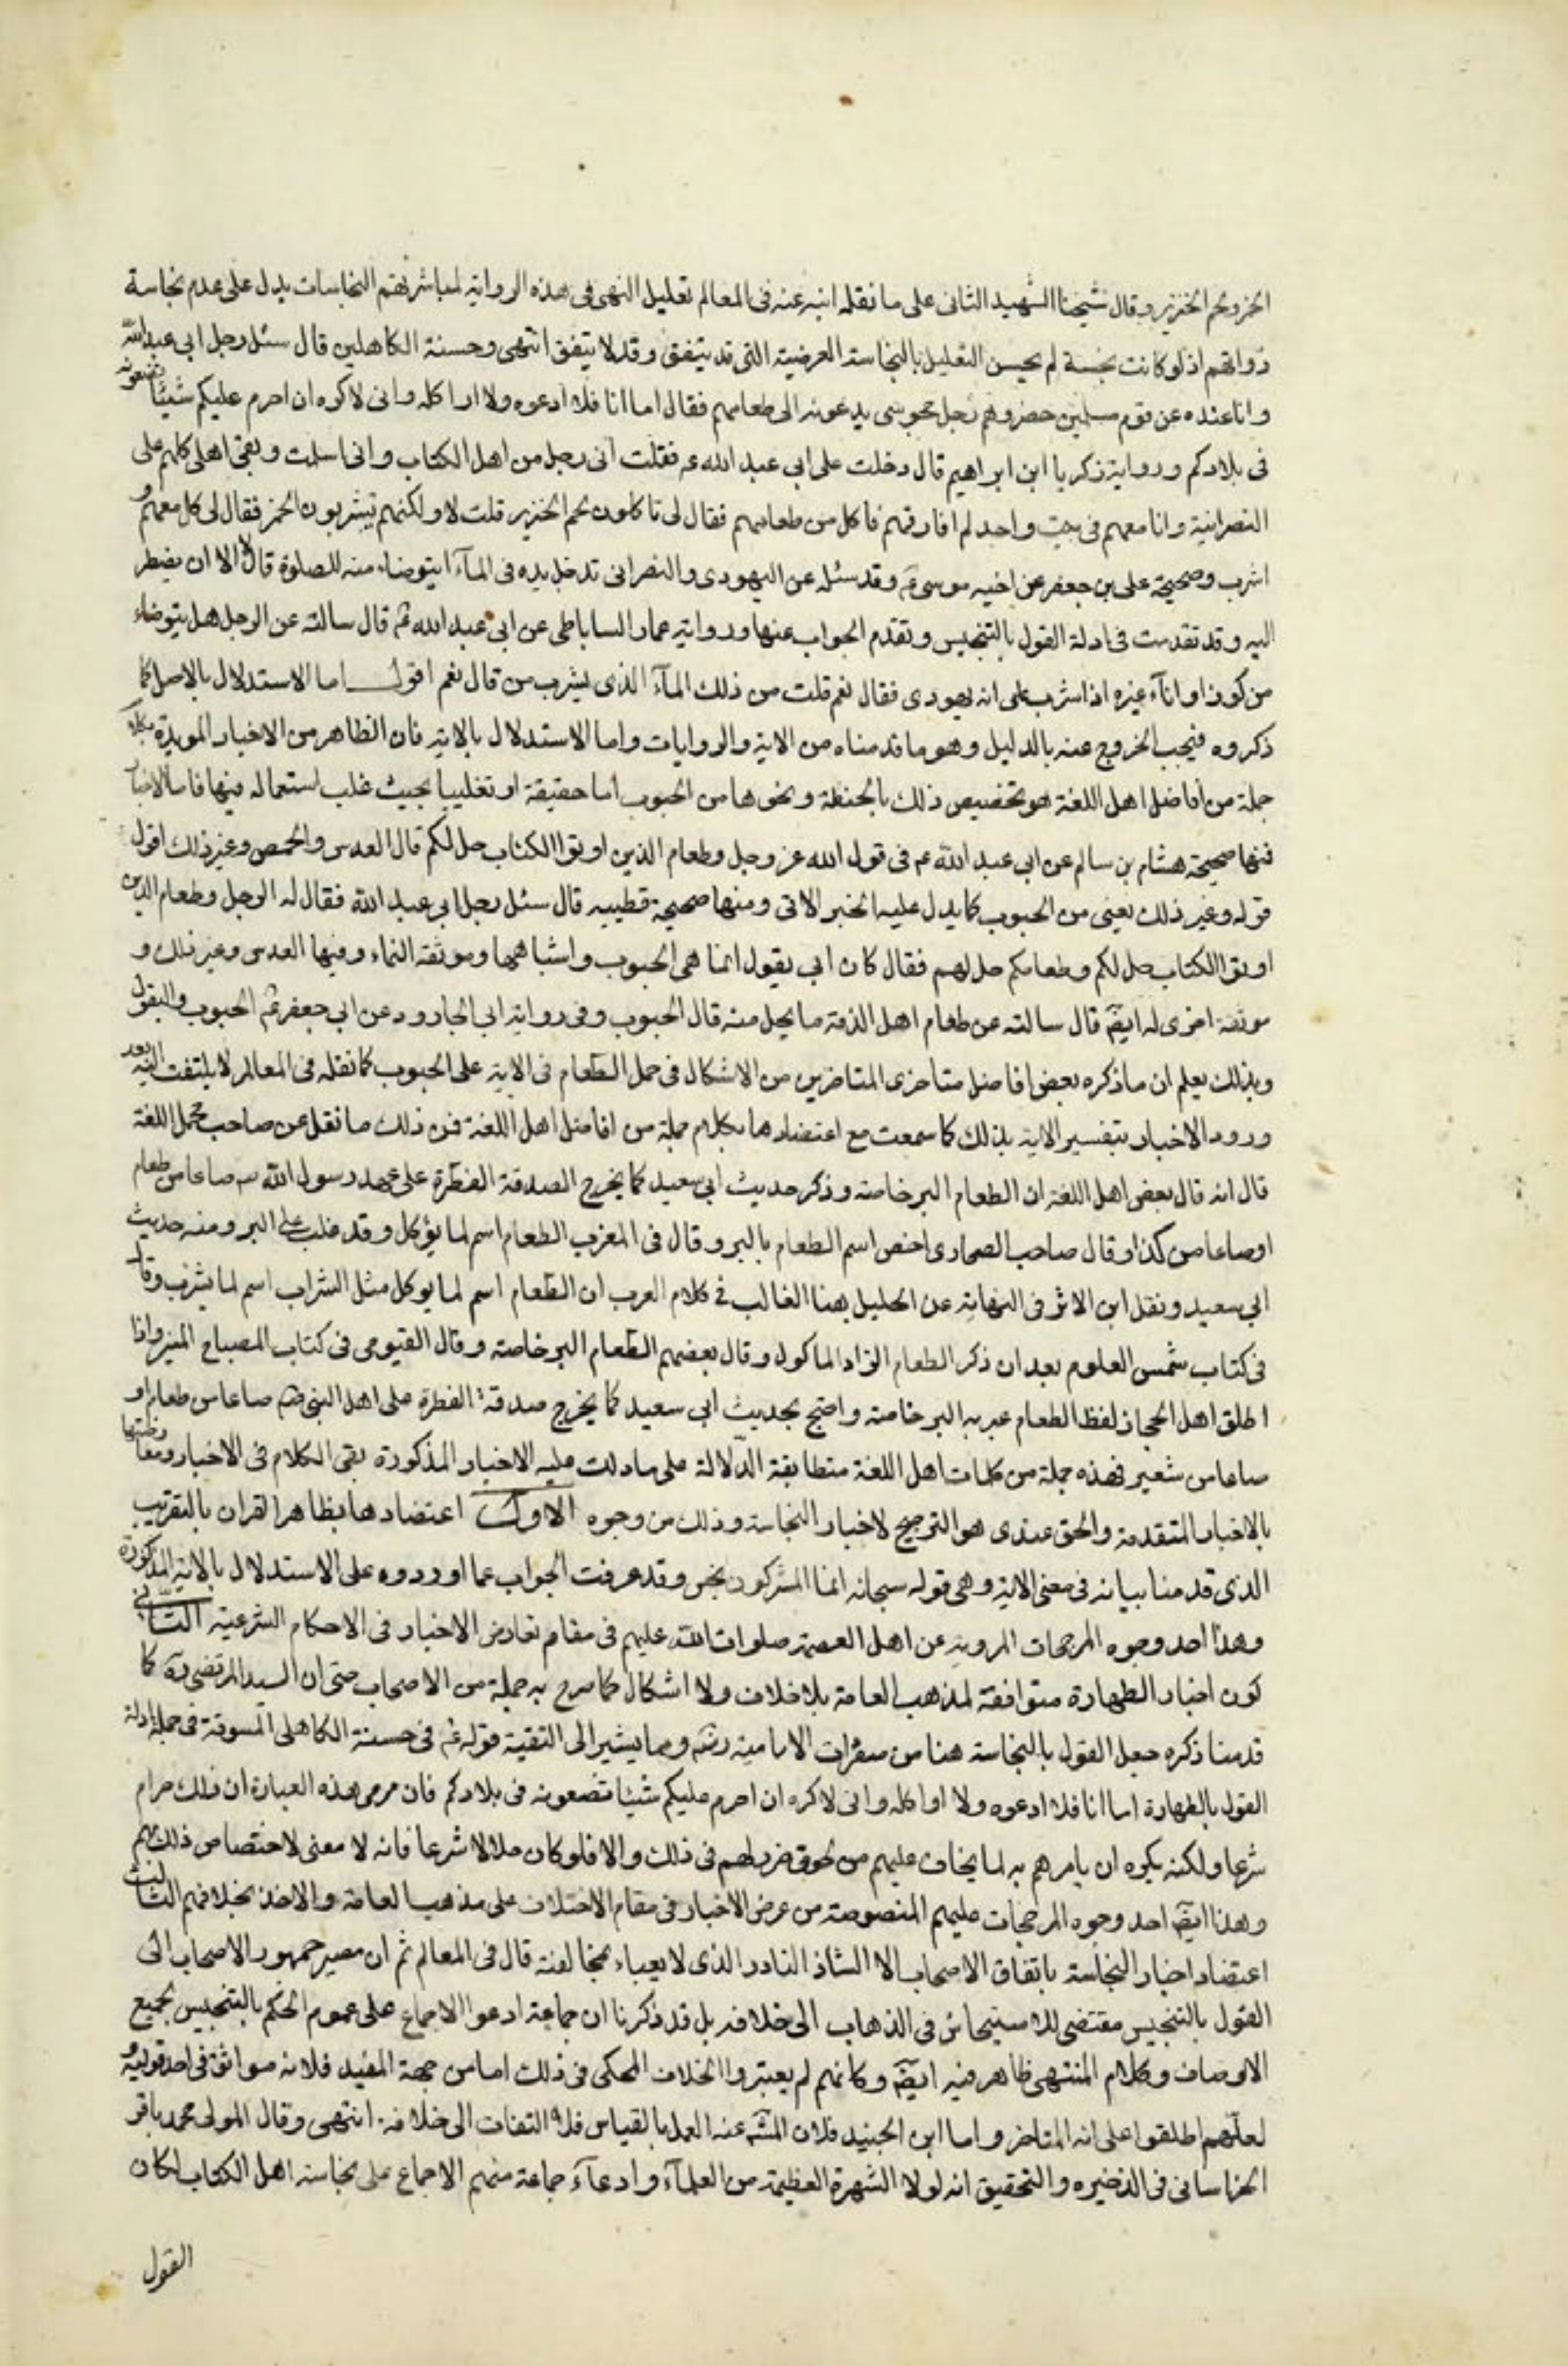 الخمر ولحم الخنزير وقال شيخنا الشهيد الثانى على ما نقله ابنه عنه فى المعالم تعليل النهى فى هذه الرواية لمباشرتهم النجاسات يدل على عدم نجاسة
ذواتهم اذ لو كانت نجسة لم يحسن التعليل بالنجاسة العرضية التى قد يتفق وقد لا يتفق انتهى وحسنة الكاهلى قال سئل رجل ابى عبد الله
وانا عنده عن قوم مسلمين حضروهم رجل مجوسى يدعونه الى طعامهم فقال اما انا فلا ادعوه ولا اواكله وانى لاكره ان احرم عليكم شيئا تصنعونه
فى بلادكم ورواية زكريا ابن ابراهيم قال دخلت على ابى عبد الله ع فقلت انى رجل من اهل الكتاب وانى اسلمت وبقى اهلى كلهم على
النصرانية وانا معهم فى بيت واحد لم افارقهم فاكل من طعامهم فقال لى تاكلون لحم الخنزير قلت لا ولكنهم يشربون الخمر فقال لى كل معهم و
اشرب وصحيحة على بن جعفر عن اخيه موسى ع وقد سئله عن اليهودى والنصرانى تدخل يده فى المآء ايتوضاء منه للصلوة قال لا الا ان يضطر
اليه وقد تقدمت فى ادلة القول بالتنجيس وتقدم الجواب عنها ورواية عمار الساباطى عن ابى عبد الله ع قال سالته عن الرجل هل يتوضاء
من كوز او انآء غيره اذا شرب على انه يهودى فقال نعم قلت من ذلك المآء الذى يشرب من قال نعم اقول اما الاستدلال بالاصل كما
ذكروه فيجب الخروج عنه بالدليل وهو ما قدمناه من الاية والروايات واما الاستدلال بالاية فان الظاهر من الاخبار المويدة بكلام
جملة من افاضل اهل اللغة هو تخصيص ذلك بالحنطة ونحوها من الحبوب اما حقيقة او تغليبا بحيث غلب استعماله فيها فاما الاخبار
فمنها صحيحة هشام بن سالم عن ابى عبد الله ع فى قول الله عز وجل وطعام الذين اوتوا الكتاب حل لكم قال العدس والحمص وغير ذلك اقول
قوله وغير ذلك يعنى من الحبوب كما يدل عليه الخبر الاتى ومنها صحيحة قطيبه قال سئل رجل ابى عبد الله فقال له الرجل وطعام الذين
اوتوا الكتاب حل لكم وطعامكم حل لهم فقال كان ابى يقول انما هى الحبوب واشباهها وموثقة النماء وفيها العدس وغير ذلك و
موثقة اخرى له ايضا قال سالته عن طعام اهل الذمة ما يحل منه قال الحبوب وفى رواية ابى الجارود عن ابى جعفر ع الحبوب والبقول
وبذلك يعلم ان ما ذكره بعض افاضل متاخرى المتاخرين من الاشكال فى حمل الطعام فى الاية على الحبوب كما نقله فى المعالم لا يلتفت اليه بعد
ورود الاخبار بتفسير الاية بذلك كما سمعت مع اعتضادها بكلام جملة من افاضل اهل اللغة فمن ذلك ما نقل عن صاحب مجمل اللغة
قال انه قال بعض اهل اللغة ان الطعام البر خاصة وذكر حديث ابى سعيد كما يخرج الصدقة الفطرة على عهد رسول الله ص صاعا من طعام
او صاعا من كذا وقال صاحب الصحاح احتص اسم الطعام بالبر وقال فى المغرب الطعام اسم لما يؤكل وقد غلب على البر ومنه حديث
ابى سعيد ونقل ابن الاثر فى النهاية عن الخليل هنا الغالب فى كلام العرب ان الطعام اسم لما يوكل مثل الشراب اسم لما يشرب وقال
فى كتاب شمس العلوم بعد ان ذكر الطعام الزاد الماكول وقال بعضهم الطعام البر خاصة وقال الفيومى فى كتاب المصباح المنير واذا
اطلق اهل الحجاز لفظ الطعام عبر به البر خاصة واحتج بحديث ابى سعيد كما يخرج صدقة الفطرة على اهل النبى ص صاعا من طعام او
صاعا من شعير فهذه جملة من كلمات اهل اللغة متطابقة الدلالة على ما دلت عليه الاخبار المذكورة بقى الكلام فى الاخبار ومعارضتها
بالاخبار المتقدمة والحق عندى هو الترجيح لاخبار النجاسة وذلك من وجوه الاول اعتضادها بظاهر القران بالتقريب
الذى قدمنا بيانه فى معنى الاية وهى قوله سبحانه انما المشركون نجس وقد عرفت الجواب عما اوردوه على الاستدلال بالاية المذكورة
وهذا احد وجوه المرجحات المروية عن اهل العصمة صلوات الله عليهم فى مقام تعارض الاخبار فى الاحكام الشرعية الثانى
كون اخبار الطهارة متوافقة لمذهب العامة بلا خلاف ولا اشكال كما صرح به جملة من الاصحاب حتى ان السيد المرتضى ره كما
قدمنا ذكره جعل القول بالنجاسة هنا من متفردات الامامية ومما يشير الى التقية قوله ع فى حسنة الكاهلى المسوقة فى جملة ادلة
القول بالطهارة اما انا فلا ادعوه ولا اواكله وانى لاكره ان احرم عليكم شيئا تصنعونه فى بلادكم فان مرمى هذه العبارة ان ذلك حرام
شرعا ولكنه يكره ان يامرهم به لما يخاف عليهم من لحوق ضرر لهم فى ذلك والا فلو كان حلالا شرعا فانه لا معنى لاختصاص ذلك بهم
وهذا ايضا احد وجوه المرجحات عليهم المنصوصة من عرض الاخبار فى مقام الاختلاف على مذهب العامة والاخذ بخلافهم الثالث
اعتضاد اخبار النجاسة باتفاق الاصحاب الا الشاذ النادر الذى لا يعباء بمخالفته قال فى المعالم ثم ان مصير جمهور الاصحاب الى
القول بالتنجيس مقتضى للاستيحاش فى الذهاب الى خلافه بل قد ذكرنا ان جماعة ادعوا الاجماع على عموم الحكم بالتنجيس لجميع
الاوصاف وكلام المنتهى ظاهر فيه ايضا وكانهم لم يعتبروا الخلاف المحكى فى ذلك اما من جهة المفيد فلانه موافق فى احد قوليه و
لعلهم اطلقوا على انه المتاخر واما ابن الجنيد فلان المش عنه العمل بالقياس فلا التفات الى خلافه انتهى وقال المولى محمد باقر
الخراسانى فى الذخيره والتحقيق انه لولا الشهرة العظيمة من العلمآء وادعآء جماعة منهم الاجماع على نجاسة اهل الكتاب لكان
القول